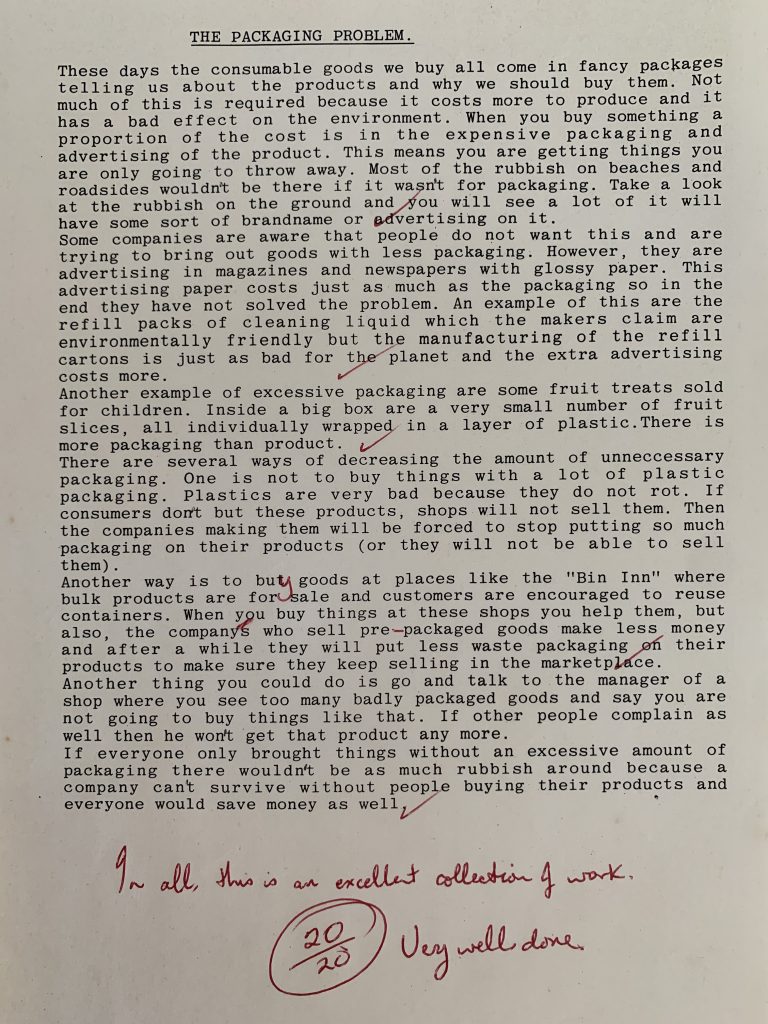 THE PACKAGING PROBLEM.
These days the consumable goods we buy all come in fancy packages
telling us about the products and why we should buy them. Not
much of this is required because it costs more to produce and it
has a bad effect on the environment. When you buy something a
proportion of the cost is in the expensive packaging and
advertising of the product. This means you are getting things you
are only going to throw away. Most of the rubbish on beaches and
roadsides wouldn't be there if it wasn't for packaging. Take a look
at the rubbish on the ground and you will see a lot of it will
have some sort of brandname or advertising on it.
Some companies are aware that people do not want this and are
trying to bring out goods with less packaging. However, they are
advertising in magazines and newspapers with glossy paper. This
advertising paper costs just as much as the packaging so in the
end they have not solved the problem. An example of this are the
refill packs of cleaning liquid which the makers claim are
environmentally friendly but the manufacturing of the refill
cartons is just as bad for the planet and the extra advertising
costs more.
Another example of excessive packaging are some fruit treats sold
for children. Inside a big box are a very small number of fruit
slices, all individually wrapped in a layer of plastic.There is
more packaging than product.
There are several ways of decreasing the amount of unneccessary
packaging. One is not to buy things with a lot of plastic
packaging. Plastics are very bad because they do not rot. If
consumers don't but these products, shops will not sell them. Then
the companies making them will be forced to stop putting so much
packaging on their products (or they will not be able to sell
them).
Another way is to buy goods at places like the "Bin Inn" where
bulk products are for sale and customers are encouraged to reuse
containers. When you buy things at these shops you help them, but
also, the company's who sell pre-packaged goods make less money
and after a while they will put less waste packaging on their
products to make sure they keep selling in the marketplace.
Another thing you could do is go and talk to the manager of a
shop where you see too many badly packaged goods and say you are
not going to buy things like that. If other people complain as
well then he won't get that product any more.
If everyone only brought things without an excessive amount of
packaging there wouldn't be as much rubbish around because a
company can't survive without people buying their products and
everyone would save money as well.
In all, this is an excellent collection of work.
20/20 Very well done.